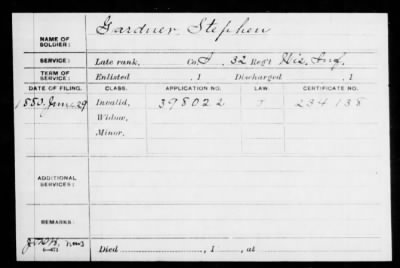 NAME OF SOLDIER: Gardner, Stephen
SERVICE: Late rank, Co. I, 32 Reg't Wis. Inf.
TERM OF SERVICE: Enlisted , 1 Discharged , 1
DATE OF FILING. CLASS. APPLICATION NO. LAW. CERTIFICATE NO.
1880, June 29 Invalid, 398022 234138
Widow,
Minor,
ADDITIONAL SERVICES:
REMARKS:
Died , 1 , at